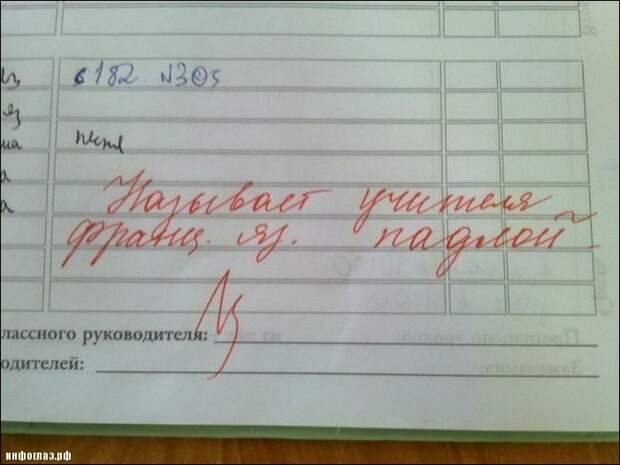 яз с182 №305
яз
ма песня
а
а Называет учителя
франц. яз. падлой.
лассного руководителя:
одителей:
инфоглаз.рф